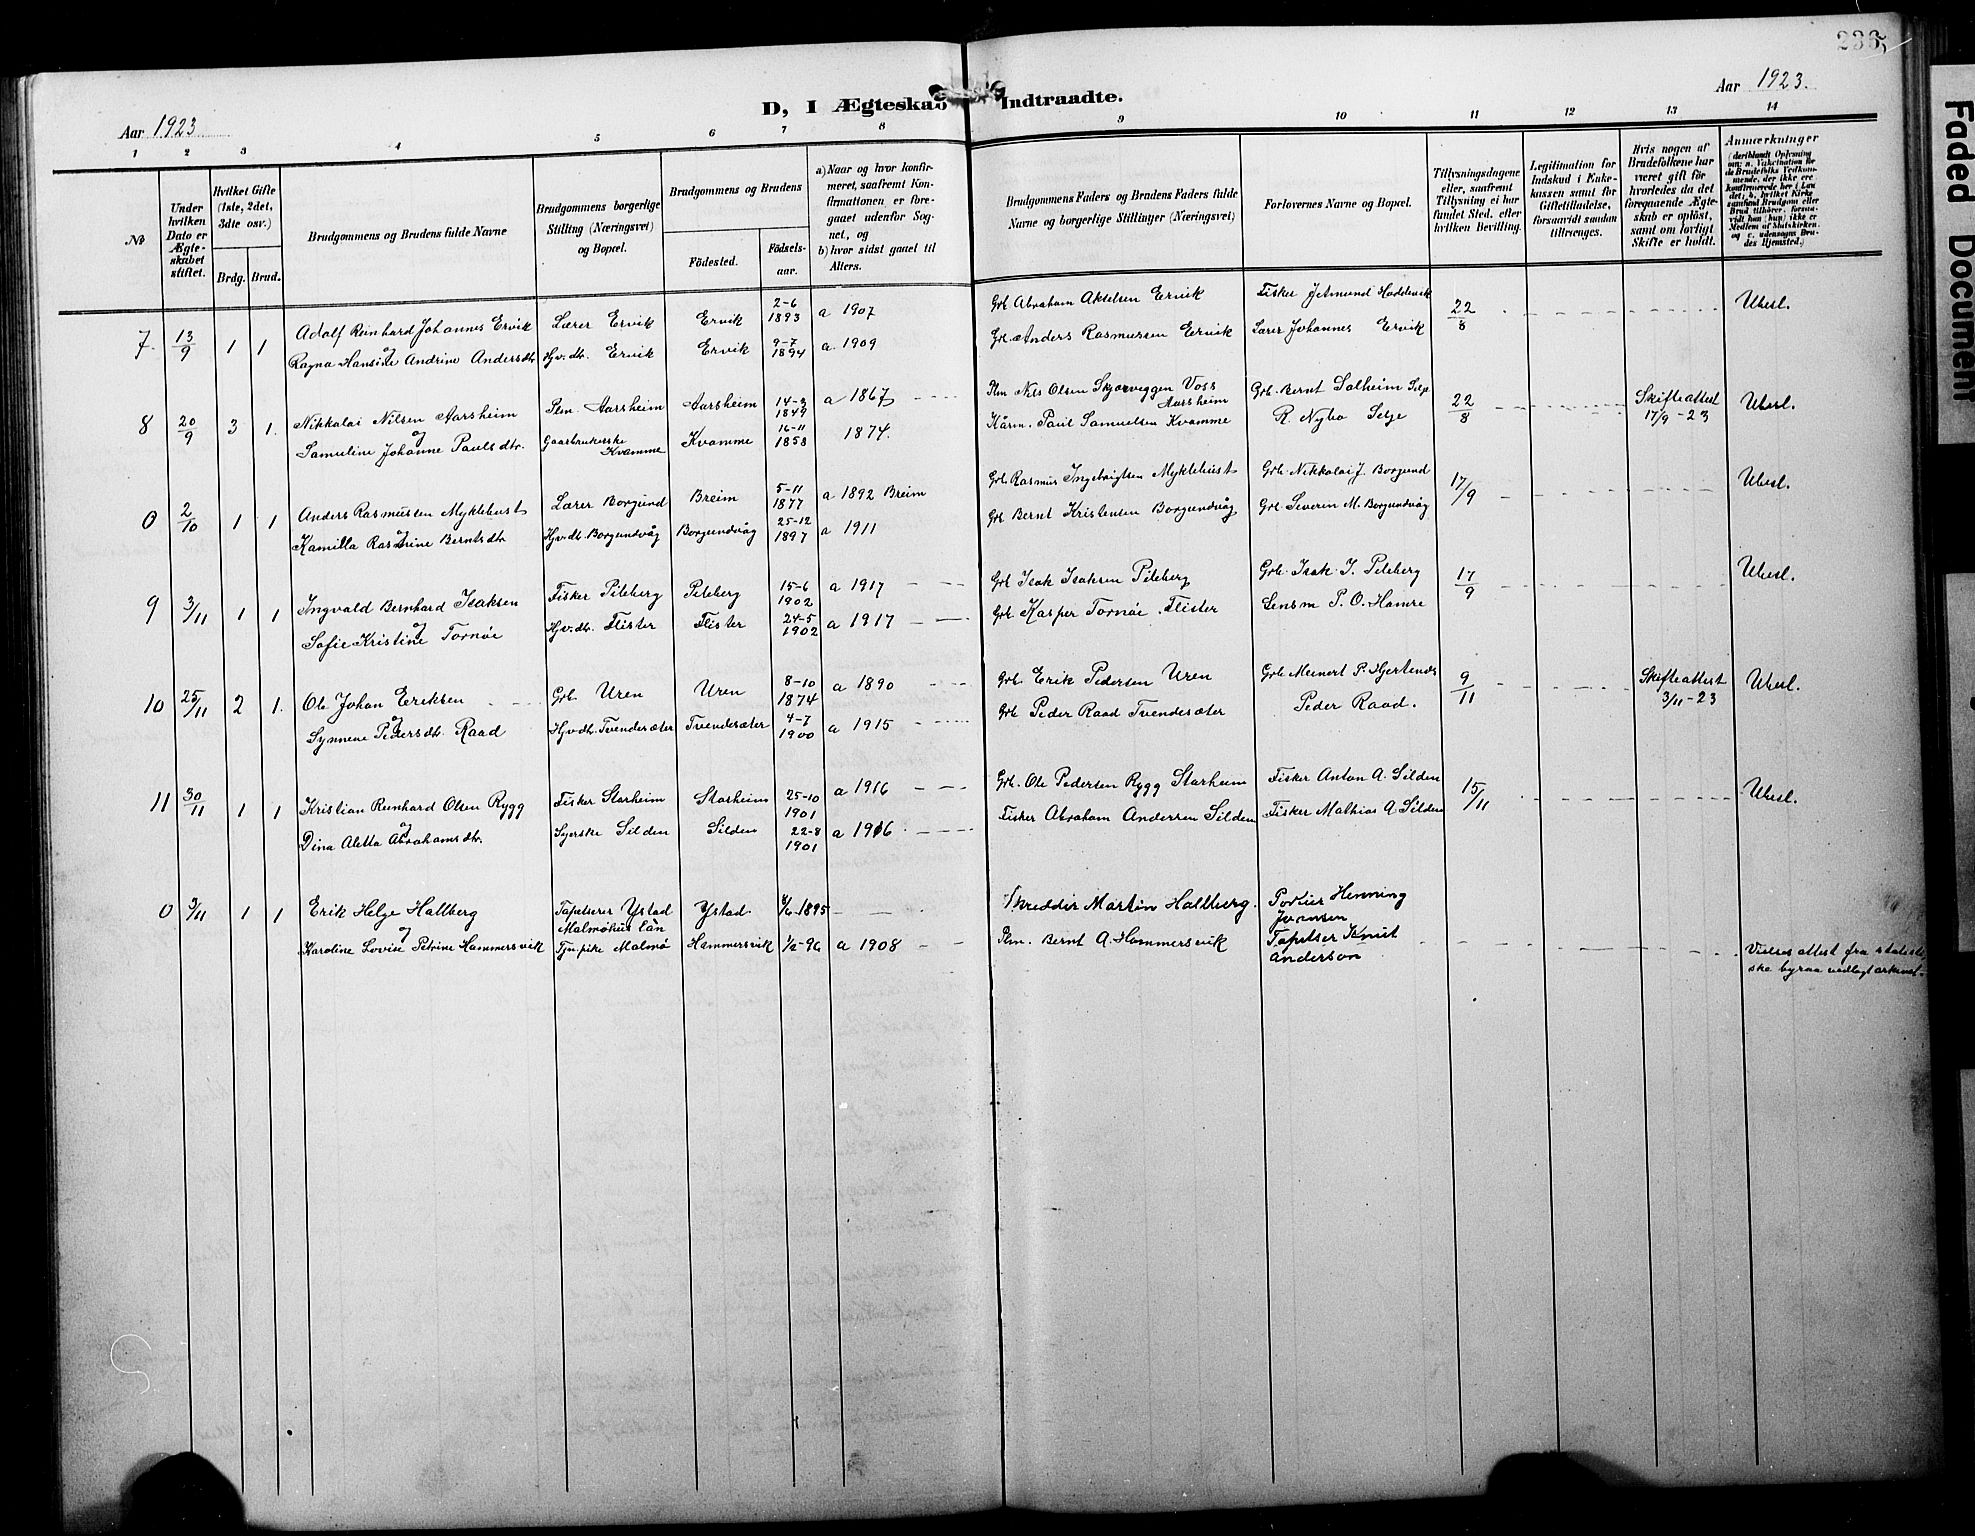 236
D, I Ægteskab Indtraadte.
Aar 1923
Aar 1923.
1 2 3 4 5 6 7 8 9 10 11 12 13 14
No
Under hvilken Dato er Ægteskabet stiftet.
Hvilket Gifte (1ste, 2det, 3dte osv.)
Brdg. Brud.
Brudgommens og Brudens fulde Navne
Brudgommens borgerlige Stilling (Næringsvei) og Bopæl.
Brudgommens og Brudens
Födested.
Födselsaar.
a) Naar og hvor konfirmeret, saafremt Konfirmationen er foregaaet udenfor Sognet, og
b) hvor sidst gaaet til Alters.
Brudgommens Faders og Brudens Faders fulde Navne og borgerlige Stillinger (Næringsvei)
Forlovernes Navne og Bopæl.
Tillysningsdagene eller, saafremt Tillysning ei har fundet Sted, efter hvilken Bevilling.
Legitimation for Indskud i Enkekassen samt for Giftetilladelse, forsaavidt saadan tiltrænges.
Hvis nogen af Brudefolkene har været gift för hvorledes da det foregaaende Ægteskab er oplöst, samt om lovligt Skifte er holdt.
Anmærkninger
7. 13/9 1 1 Adolf Reinhard Johannes Ervik Lærer Ervik Ervik 2-6 1893 a 1907 Grb. Abraham Akselsen Ervik Fisker Jetmund Hoddevik 22/8 Ubesl.
og
Ragna Hansine Andrine Andersdtr. Hjv. dtr. Ervik Ervik 9-7 1894 a. 1909 Grb. Anders Rasmussen Ervik Lærer Johannes Ervik
8 20/9 3 1. Nikkolai Nilsen Aarsheim Plm. Aarsheim Aarsheim 14-3 1849 a 1867 Plm Nils Olsen Skjorveggen Voss Aarsheim Grb. Bernt Solheim Selje 22/8 Skifteattest 17/9-23 Ubesl.
og
Samuline Johanne Paulsdtr. Gaardbrukerske Kvamme Kvamme 16-11 1858 1874. Kårm. Paul Samuelsen Kvamme R. Nybø Selje
0 2/10 1 1 Anders Rasmussen Myklebust Lærer Borgund Breim 5-11 1877 a 1892 Breim Grb. Rasmus Ingebrigtsen Myklebust Grb. Nikkolai J. Borgund 17/9 Ubesl.
og
Kamilla Rasmine Berntsdtr Hjv. dtr. Borgundvåg Borgundvåg 25-12 1897 a 1911 Grb Bernt Kristensen Borgundvåg Grb. Severin M. Borgundvåg
9 3/11 1 1 Ingvald Bernhard Isaksen Fisker Pileberg Pileberg 15-6 1902 a 1917 Grb Isak Isaksen Pileberg Grb. Isak I. Pileberg 17/9 Ubesl.
og
Sofie Kristine Tornøe Hjv. dtr. Flister Flister 24-5 1902 a 1917 Grb. Kasper Tornøe. Flister Lensm P. O. Hamre
10 25/11 2 1. Ole Johan Eriksen Grb. Uren Uren 8-10 1874 a 1890 Grb. Erik Pedersen Uren Grb. Meinert P. Hjertenes 9/11 Skifteattest 3/11-23 Ubesl.
og
Synneve Pedersdtr. Raad Hjvdtr. Tvendesæter Tvendesæter 4-7 1900 a 1915 Grb Peder Raad Tvendesæter Peder Raad.
11 30/11 1 1 Kristian Reinhard Olsen Rygg Fisker Starheim Starheim 25-10 1901 a 1916 Grb. Ole Pedersen Rygg Starheim Fisker Anton A. Silden 15/11 Ubesl.
og
Dina Aletta Abrahamsdtr. Syerske Silden Silden 22-8 1901 a 1916 Fisker Abraham Andersen Silden Fisker Mathias A. Silden
0 3/11 1 1 Erik Helge Hallberg Tapetserer Ystad Malmøhus Län Ystad 1895 Skredder Martin Hallberg. Portier Henning
og
Karoline Lovise Petrine Hammersvik Tj. pike Malmø Hammersvik 96 a 1908 Plm. Bernt A. Hammersvik Tapetser Knut Anderson Vielsesattest fra statistiske byraa vedlagt arkivet.
Faded Document